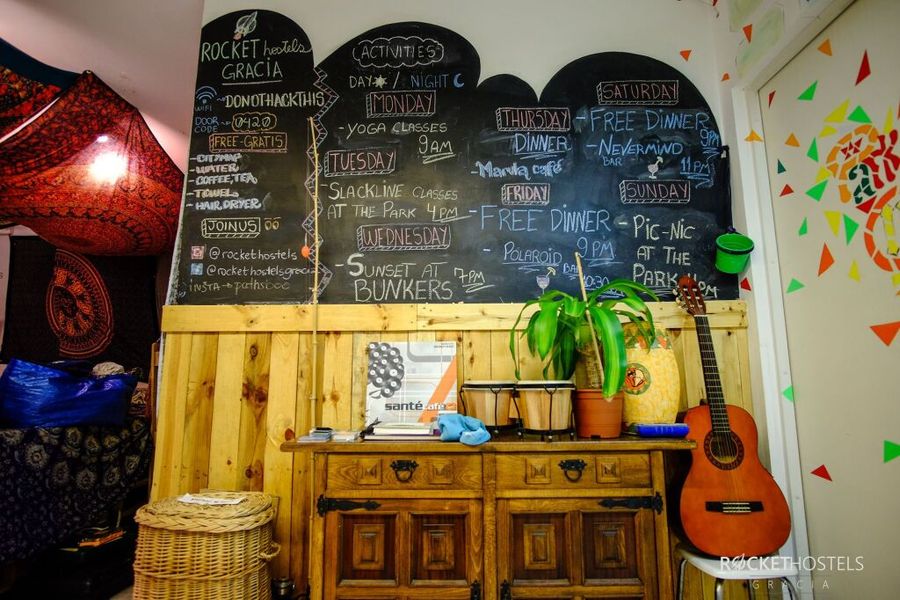 ROCKET hostels
GRACIA
WIFI
-DONOTHACKTHIS
DOOR CODE 0420
FREE-GRATIS
-CITYMAP
-WATER
-COFFEE, TEA
-TOWEL
-HAIR, DRYER
JOIN US
@rockethostels
@rockethostelsgracia
ACTIVITIES
DAY / NIGHT
MONDAY
-YOGA CLASSES
9AM
TUESDAY
-SLACKLINE CLASSES
AT THE PARK 4PM
WEDNESDAY
-SUNSET AT
BUNKERS 7PM
THURSDAY
DINNER
-Manula café
FRIDAY
-FREE DINNER
9PM
-POLAROID
BAR
SATURDAY
-FREE DINNER
9PM
-NEVERMIND
BAR
11PM
SUNDAY
-PIC-NIC
AT THE
PARK
santé café
ROCKETHOSTELS
GRACIA